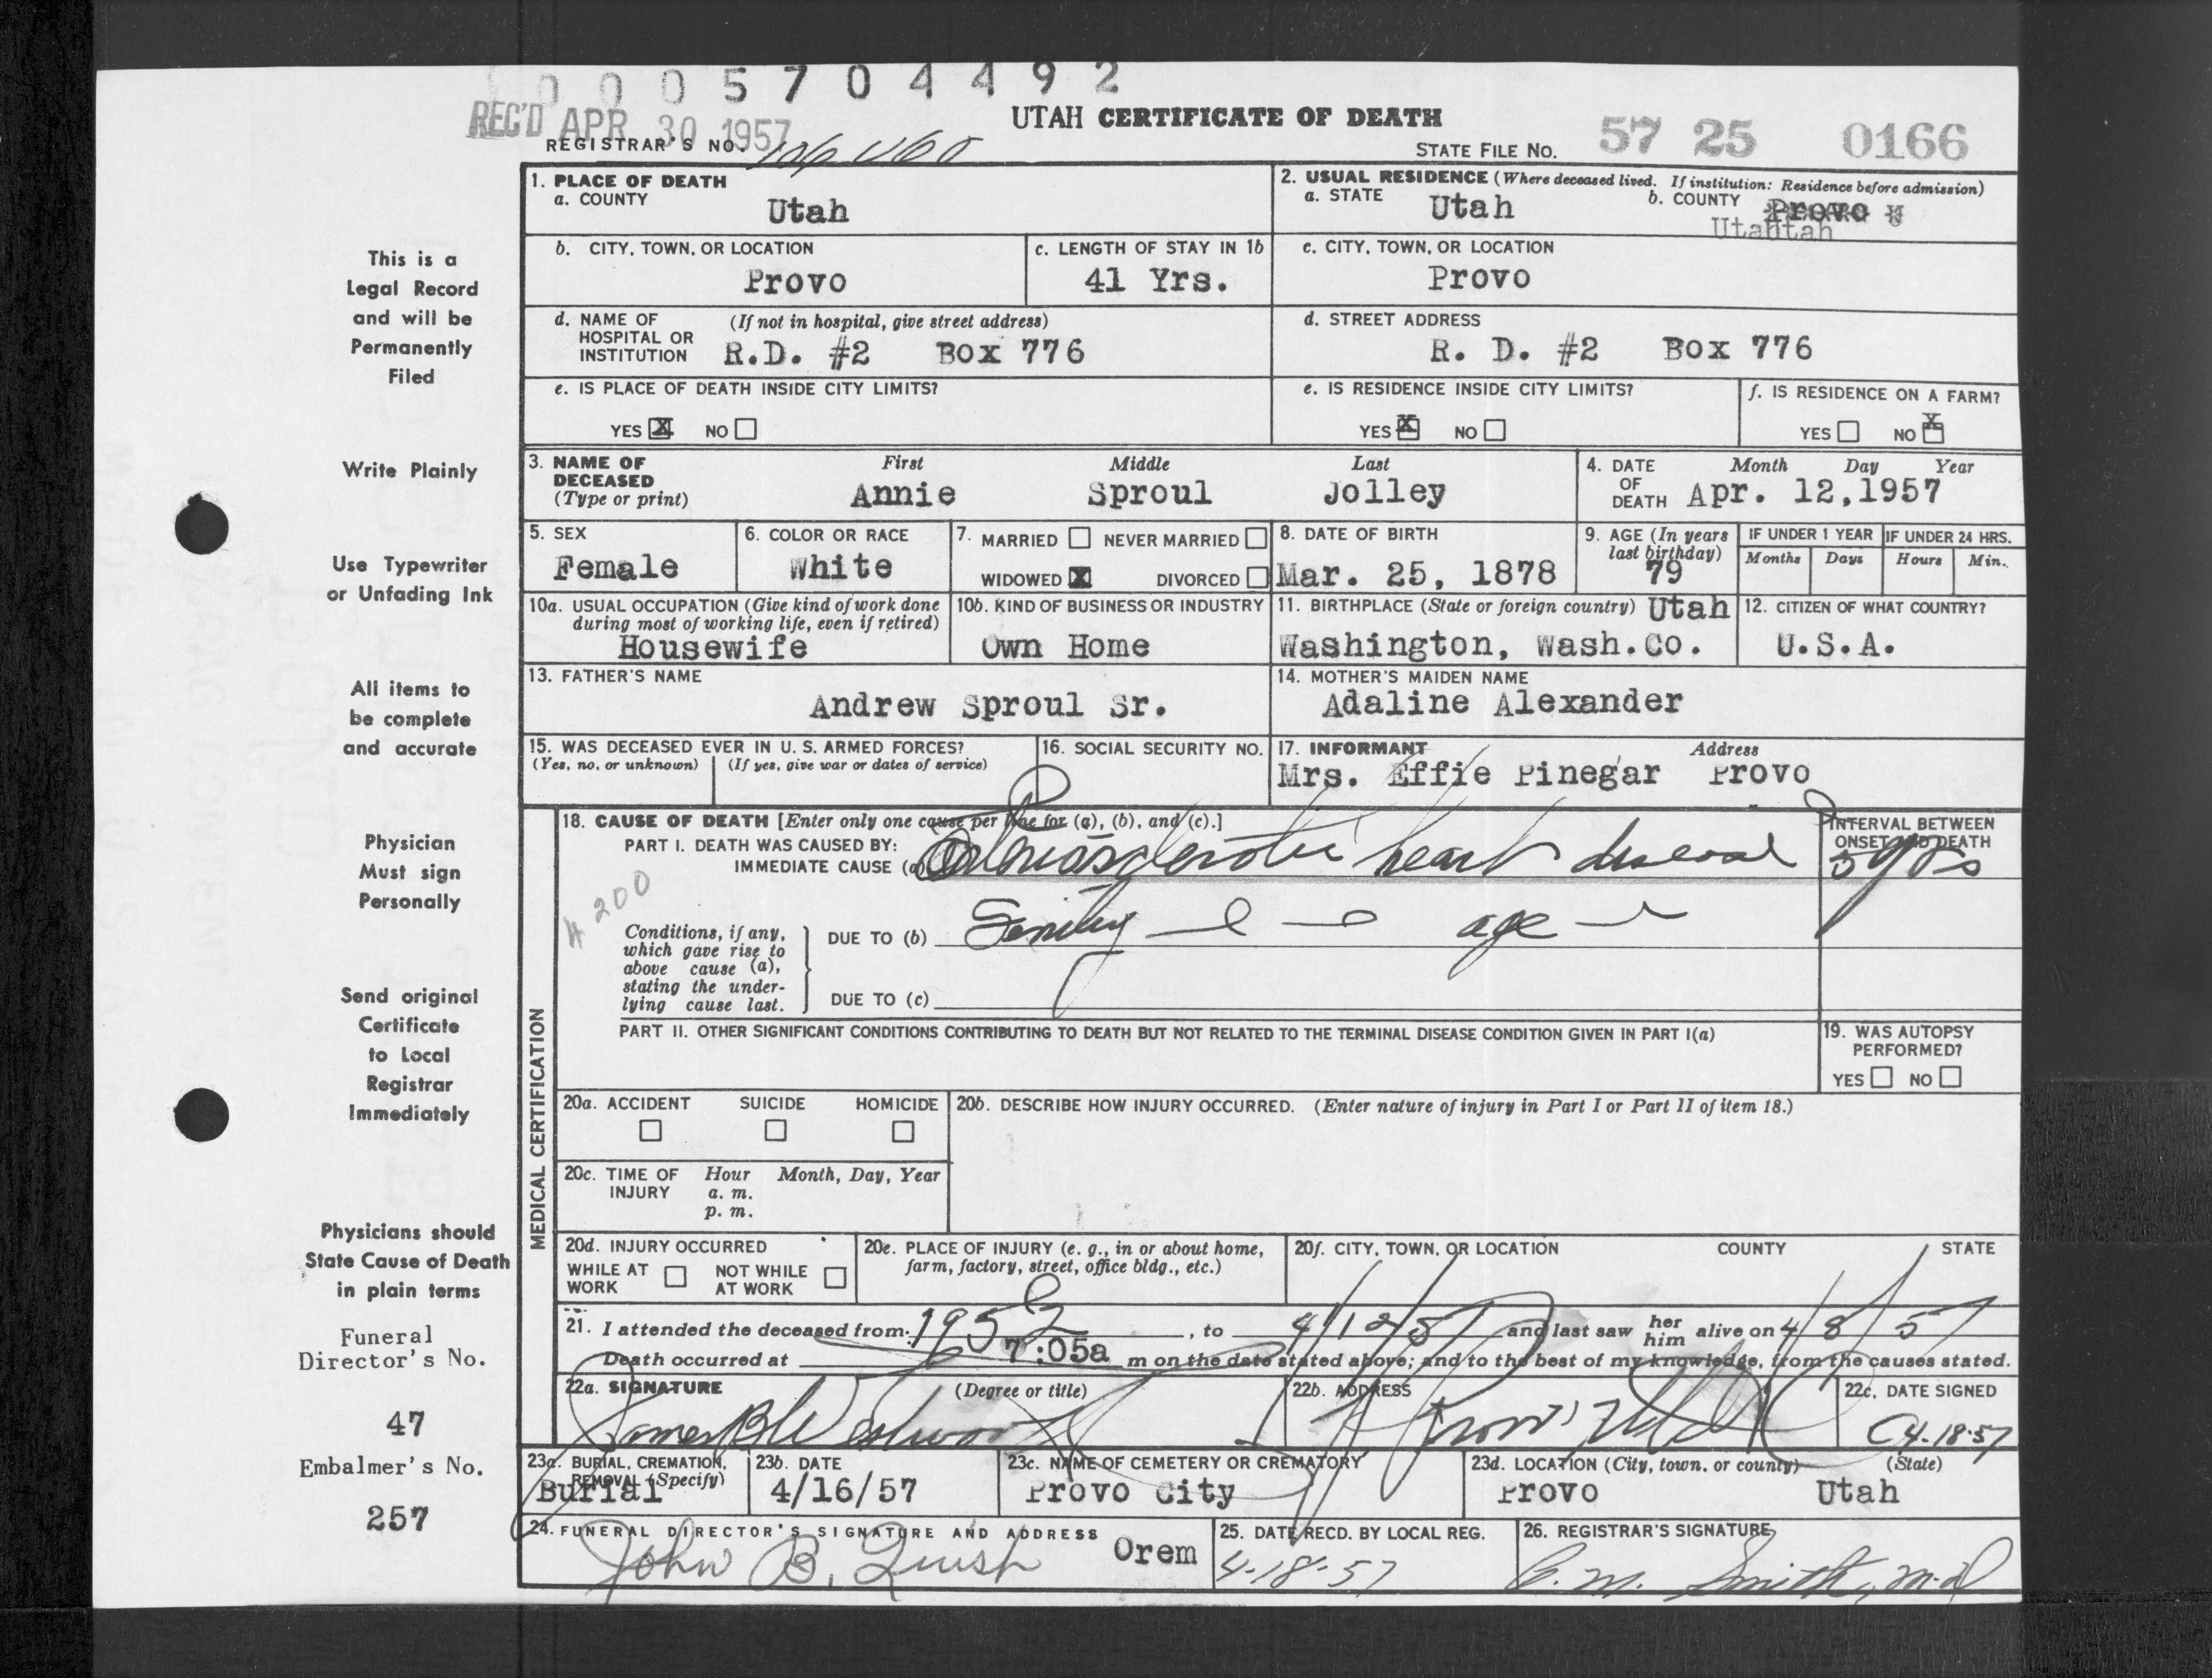 0005704492
REC'D APR 30 1957
UTAH CERTIFICATE OF DEATH
REGISTRAR'S NO.
STATE FILE NO. 57 25 0166
1. PLACE OF DEATH
a. COUNTY
Utah
2. USUAL RESIDENCE (Where deceased lived. If institution: Residence before admission)
a. STATE Utah
b. COUNTY Provo
Utah
b. CITY, TOWN, OR LOCATION
Provo
c. LENGTH OF STAY IN 1b
41 Yrs.
c. CITY, TOWN, OR LOCATION
Provo
d. NAME OF HOSPITAL OR INSTITUTION (If not in hospital, give street address)
R.D. #2 Box 776
d. STREET ADDRESS
R. D. #2 Box 776
e. IS PLACE OF DEATH INSIDE CITY LIMITS?
YES X NO
e. IS RESIDENCE INSIDE CITY LIMITS?
YES X NO
f. IS RESIDENCE ON A FARM?
YES NO X
3. NAME OF DECEASED (Type or print)
First Middle Last
Annie Sproul Jolley
4. DATE OF DEATH
Month Day Year
Apr. 12,1957
5. SEX
Female
6. COLOR OR RACE
White
7. MARRIED NEVER MARRIED
WIDOWED X DIVORCED
8. DATE OF BIRTH
Mar. 25, 1878
9. AGE (In years last birthday)
79
IF UNDER 1 YEAR
Months Days
IF UNDER 24 HRS.
Hours Min.
10a. USUAL OCCUPATION (Give kind of work done during most of working life, even if retired)
Housewife
10b. KIND OF BUSINESS OR INDUSTRY
Own Home
11. BIRTHPLACE (State or foreign country) Utah
Washington, Wash.Co.
12. CITIZEN OF WHAT COUNTRY?
U.S.A.
13. FATHER'S NAME
Andrew Sproul Sr.
14. MOTHER'S MAIDEN NAME
Adaline Alexander
15. WAS DECEASED EVER IN U. S. ARMED FORCES?
(Yes, no, or unknown) (If yes, give war or dates of service)
16. SOCIAL SECURITY NO.
17. INFORMANT Address
Mrs. Effie Pinegar Provo
MEDICAL CERTIFICATION
18. CAUSE OF DEATH [Enter only one cause per line for (a), (b), and (c).]
PART I. DEATH WAS CAUSED BY:
IMMEDIATE CAUSE (a) heart disease
INTERVAL BETWEEN ONSET AND DEATH
5 yrs
4200
Conditions, if any, which gave rise to above cause (a), stating the underlying cause last.
DUE TO (b) age
DUE TO (c)
PART II. OTHER SIGNIFICANT CONDITIONS CONTRIBUTING TO DEATH BUT NOT RELATED TO THE TERMINAL DISEASE CONDITION GIVEN IN PART I(a)
19. WAS AUTOPSY PERFORMED?
YES NO
20a. ACCIDENT SUICIDE HOMICIDE
20b. DESCRIBE HOW INJURY OCCURRED. (Enter nature of injury in Part I or Part II of item 18.)
20c. TIME OF INJURY Hour Month, Day, Year
a. m.
p. m.
20d. INJURY OCCURRED
WHILE AT WORK NOT WHILE AT WORK
20e. PLACE OF INJURY (e. g., in or about home, farm, factory, street, office bldg., etc.)
20f. CITY, TOWN, OR LOCATION COUNTY STATE
21. I attended the deceased from 1952, to 4/12/57 and last saw her him alive on 4/8/57
Death occurred at 7:05a m on the date stated above; and to the best of my knowledge, from the causes stated.
22a. SIGNATURE (Degree or title)
22b. ADDRESS
Provo Utah
22c. DATE SIGNED
4-18-57
23a. BURIAL, CREMATION, REMOVAL (Specify)
Burial
23b. DATE
4/16/57
23c. NAME OF CEMETERY OR CREMATORY
Provo City
23d. LOCATION (City, town, or county) (State)
Provo Utah
24. FUNERAL DIRECTOR'S SIGNATURE AND ADDRESS
John B. Orem
25. DATE RECD. BY LOCAL REG.
4-18-57
26. REGISTRAR'S SIGNATURE
C. M. Smith, M.D
This is a
Legal Record
and will be
Permanently
Filed
Write Plainly
Use Typewriter
or Unfading Ink
All items to
be complete
and accurate
Physician
Must sign
Personally
Send original
Certificate
to Local
Registrar
Immediately
Physicians should
State Cause of Death
in plain terms
Funeral
Director's No.
47
Embalmer's No.
257